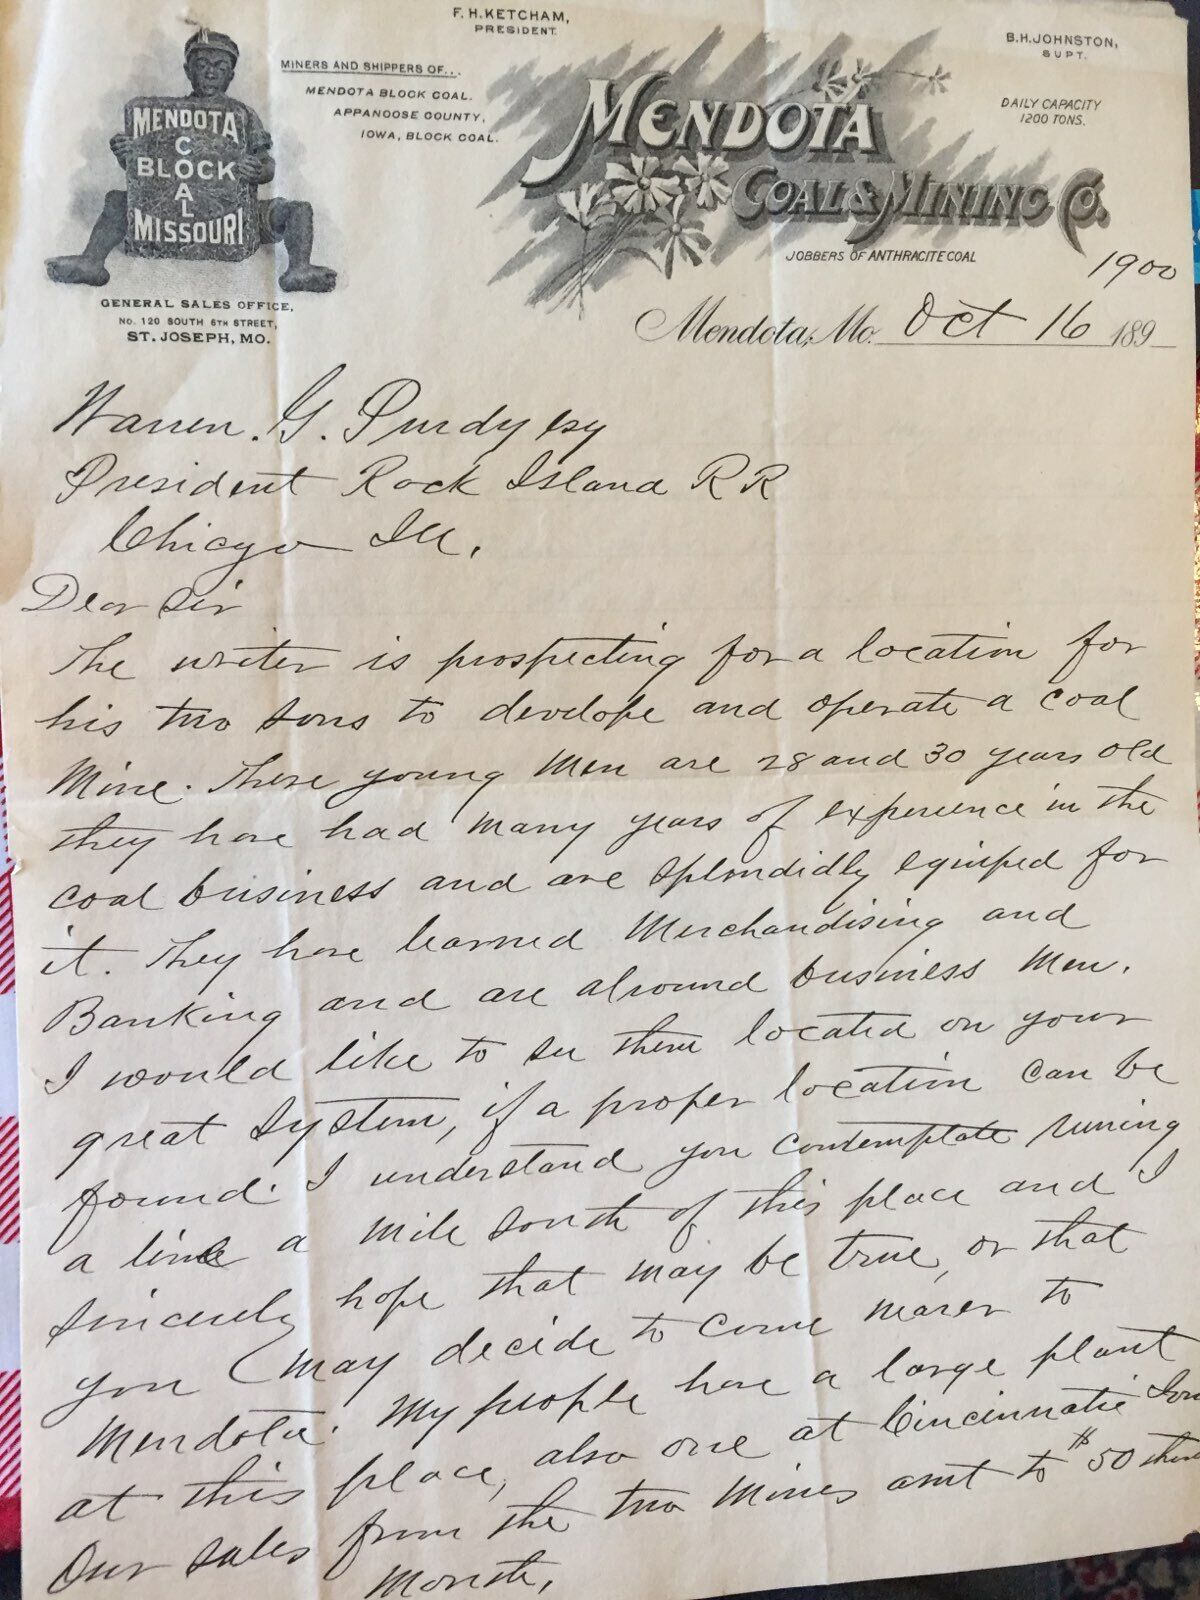 F. H. KETCHAM,
PRESIDENT.
B. H. JOHNSTON,
SUPT.
MINERS AND SHIPPERS OF...
MENDOTA BLOCK COAL.
APPANOOSE COUNTY,
IOWA, BLOCK COAL.
DAILY CAPACITY
1200 TONS.
MENDOTA
BLOCK
COAL
MISSOURI
MENDOTA
COAL & MINING CO.
JOBBERS OF ANTHRACITE COAL
GENERAL SALES OFFICE,
No. 120 SOUTH 6TH STREET,
ST. JOSEPH, MO.
1900
Mendota, Mo. Oct 16 189
Warren. G. Purdy Esq
President Rock Island R R
Chicago Ill,
Dear Sir
The writer is prospecting for a location for
his two sons to develope and operate a coal
Mine. These young Men are 28 and 30 years old
they have had many years of experience in the
coal business and are splendidly equiped for
it. They have learned Merchandising and
Banking and are alround business Men.
I would like to see them located on your
great System, if a proper location can be
found. I understand you contemplate runing
a line a mile south of this place and I
sincerely hope that may be true, or that
you may decide to come nearer to
Mendota. My people have a large plant
at this place, also one at Cincinnatie
Our sales from the two Mines amt to $50
Month,